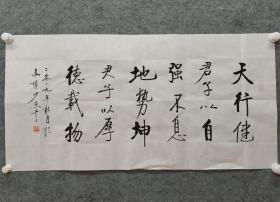 天行健
君子以自
强不息
地势坤
君子以厚
德载物
二零一九年秋月於